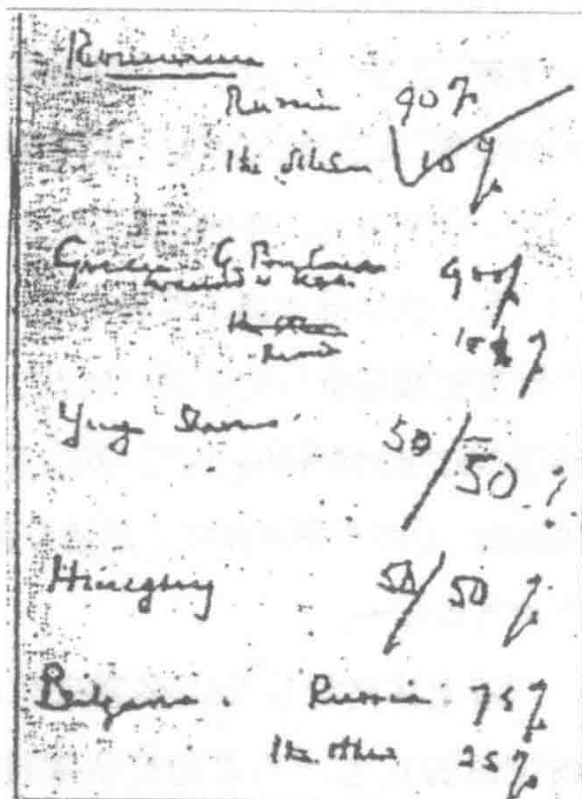 Roumania
Russia 90%
The others 10%
Greece G Britain 90%
in accord with USA
The others
Russia 10%
Yugo Slavia 50/50%
Hungary 50/50%
Bulgaria. Russia 75%
The others 25%